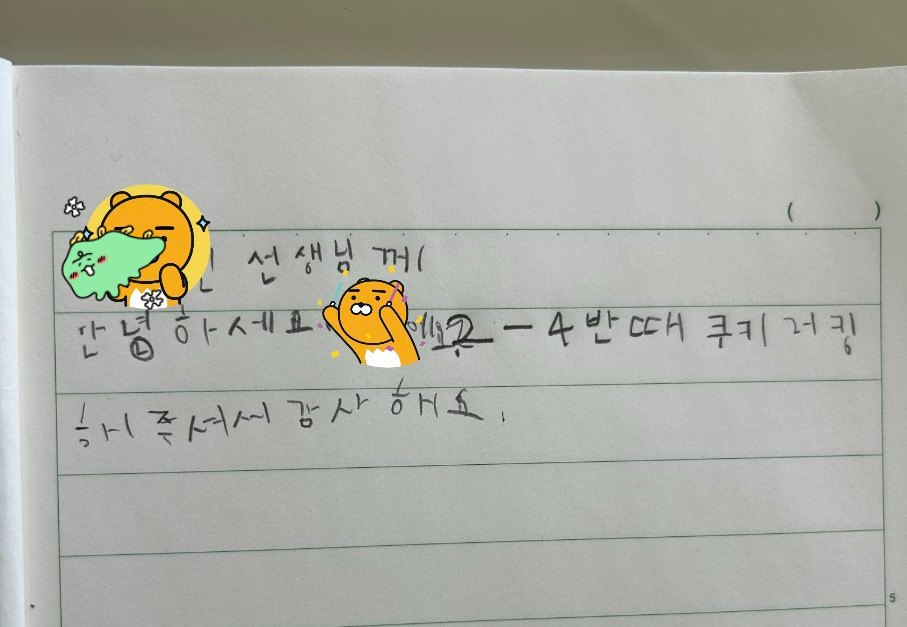 선생님 께
안녕하세요 에요 2-4반때 쿠키러킹
해 주셔서 감사 해요.
( )
5